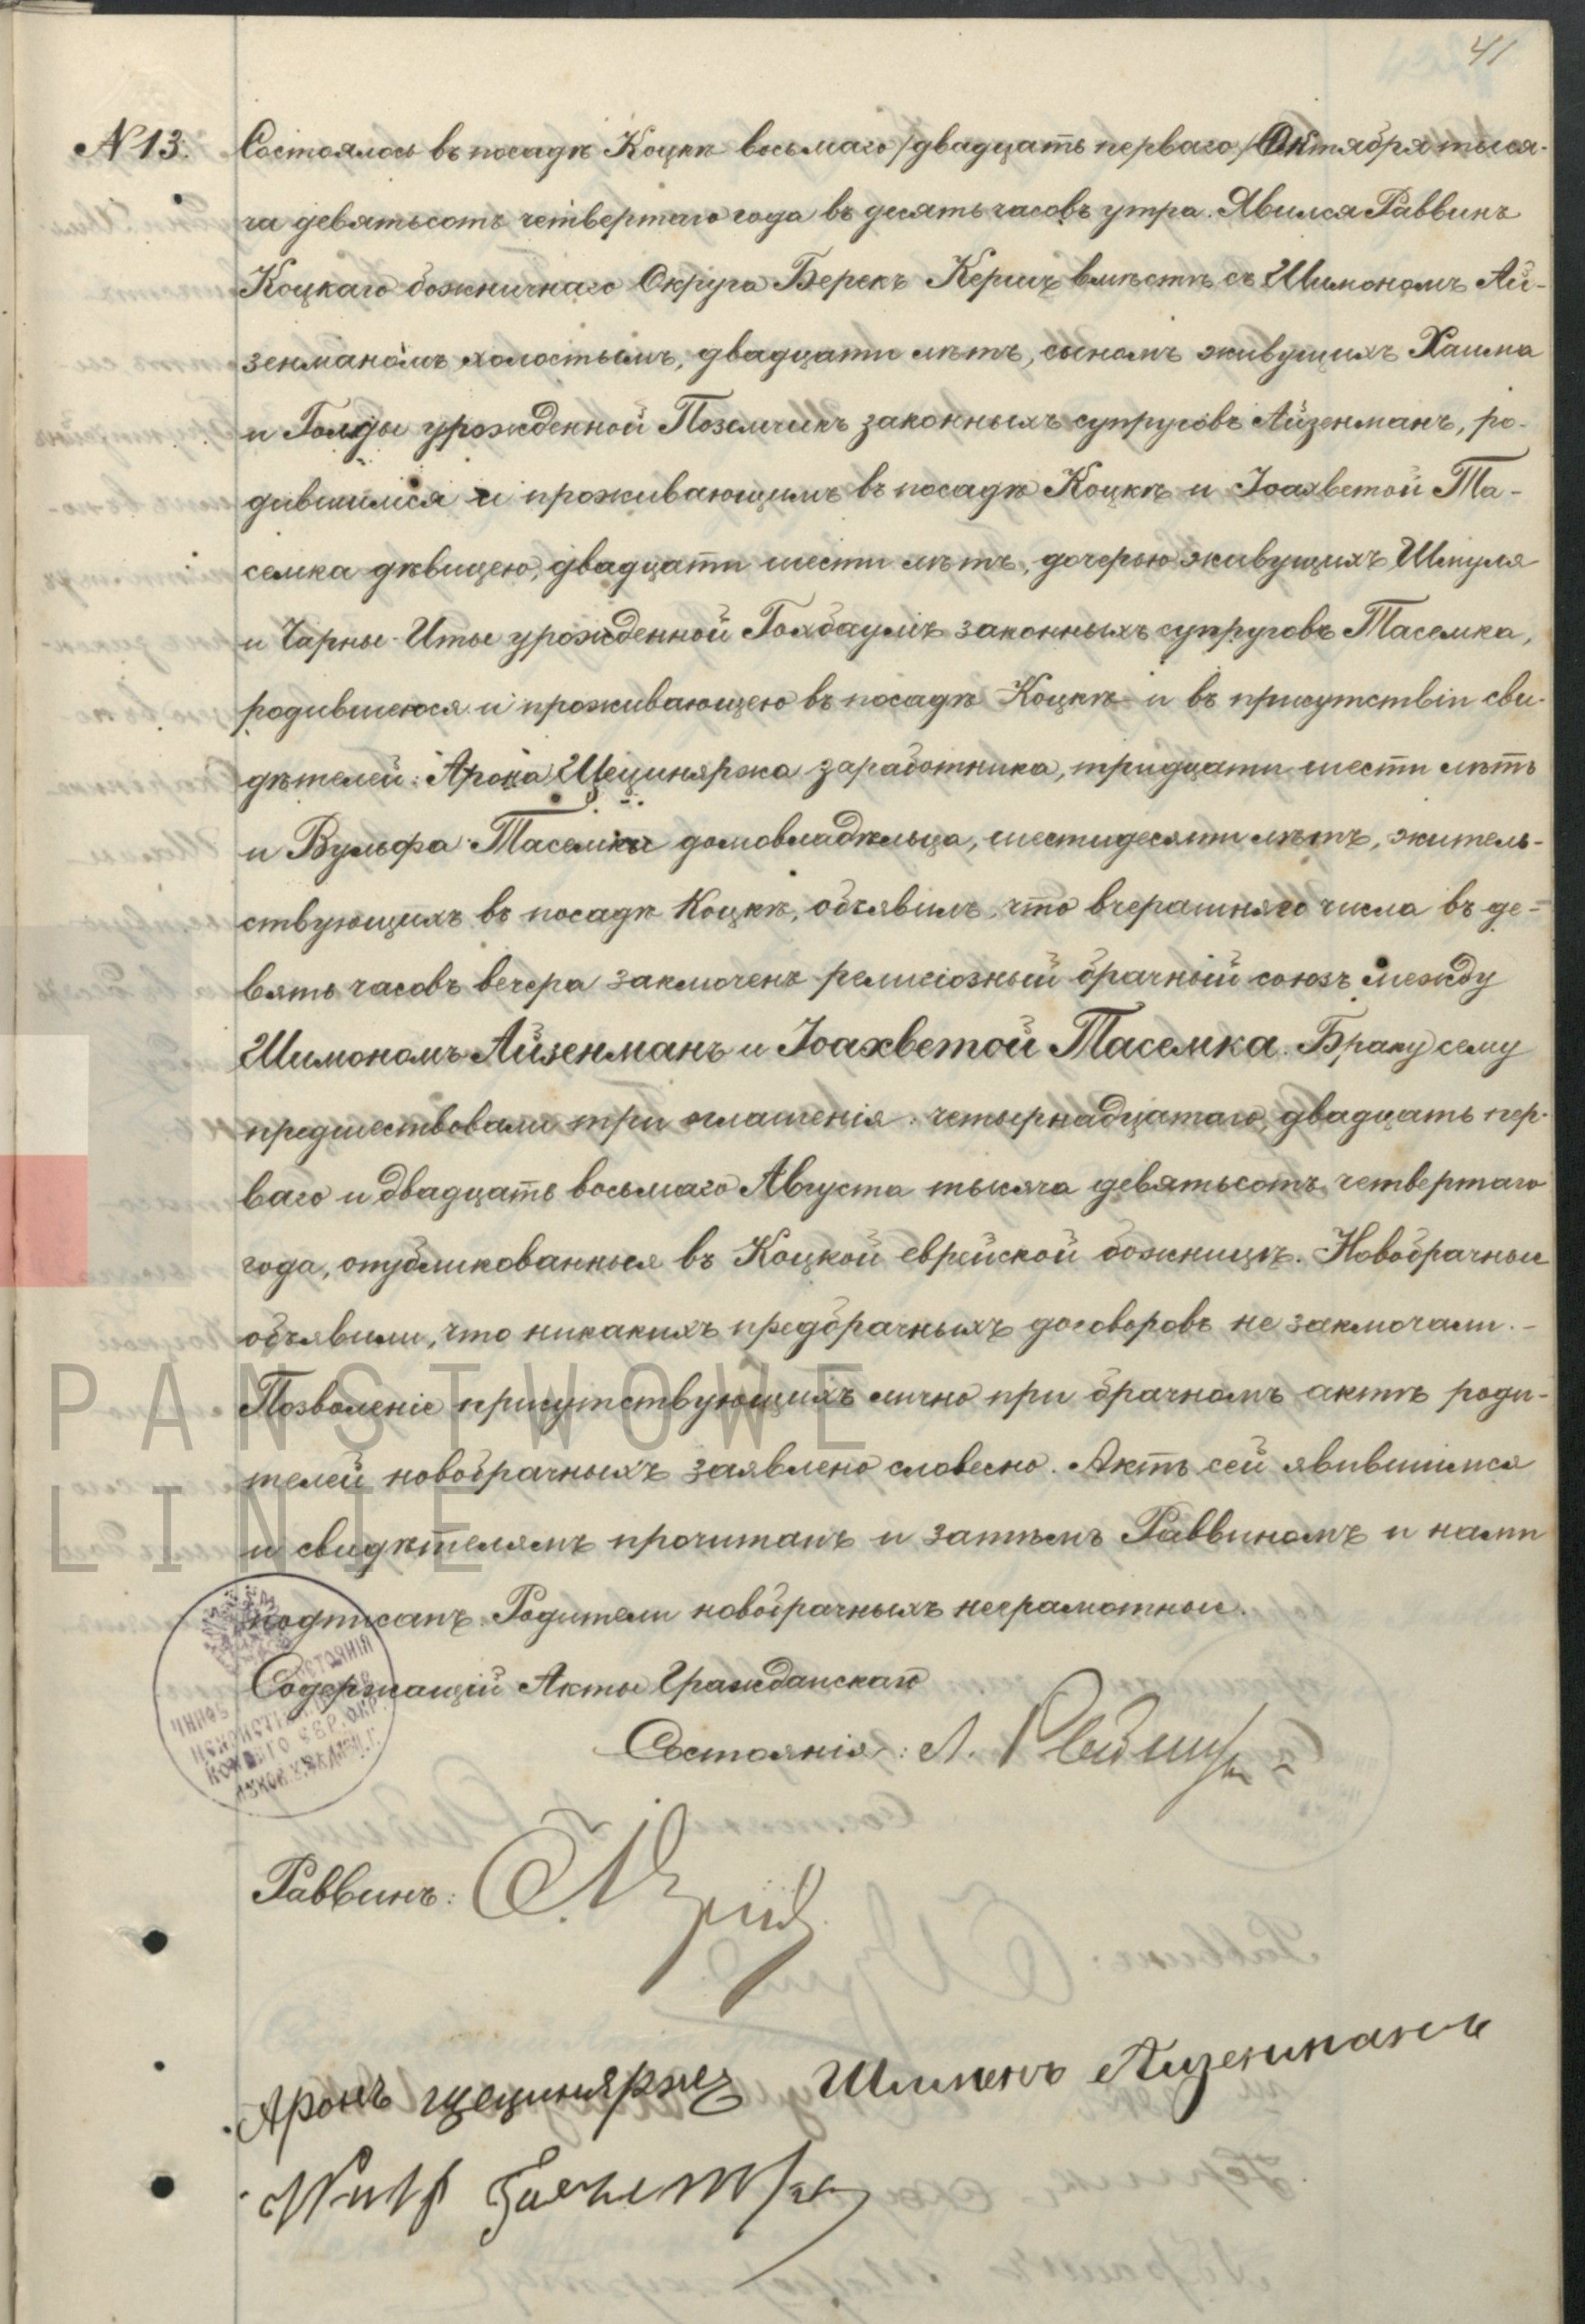 41
N 13.
Состоялось въ посадѣ Коцкѣ восьмаго /двадцать перваго/ Октября тыся-
ча девятьсотъ четвертаго года въ десять часовъ утра. Явился Раввинъ
Коцкаго божничнаго Округа Берекъ Кершъ вмѣстѣ съ Шимономъ Ай-
зенманомъ холостымъ, двадцати лѣтъ, сыномъ живущихъ Хаима
и Голды урожденной Поземчикъ законныхъ супруговъ Айзенманъ, ро-
дившимся и проживающимъ въ посадѣ Коцкѣ и Іоахветой Та-
семка дѣвицею, двадцати шести лѣтъ, дочерью живущихъ Шмуля
и Чарны-Иты урожденной Голдбаумъ законныхъ супруговъ Тасемка,
родившеюся и проживающею въ посадѣ Коцкѣ и въ присутствіи сви-
дѣтелей: Арона Щециняржа заработника, тридцати шести лѣтъ
и Вульфа Тасемки домовладѣльца, шестидесяти лѣтъ, житель-
ствующихъ въ посадѣ Коцкѣ, объявилъ, что вчерашняго числа въ де-
вять часовъ вечера заключенъ религіозный брачный союзъ между
Шимономъ Айзенманъ и Іоахветой Тасемка. Браку сему
предшествовали три оглашенія: четырнадцатаго, двадцать пер-
ваго и двадцать восьмаго Августа тысяча девятьсотъ четвертаго
года, опубликованныя въ Коцкой еврейской божницѣ. Новобрачные
объявили, что никакихъ предбрачныхъ договоровъ не заключали.-
Позволеніе присутствующихъ лично при брачномъ актѣ роди-
телей новобрачныхъ заявлено словесно. Актъ сей явившимся
и свидѣтелямъ прочитанъ и затѣмъ Раввиномъ и нами
подписанъ. Родители новобрачныхъ неграмотные.
Содержащій Акты Гражданскаго
Состоянія: Л.
Раввинъ:
Аронъ щециняржъ Шимонъ Айзенманъ
PANSTWOWE
LINIE